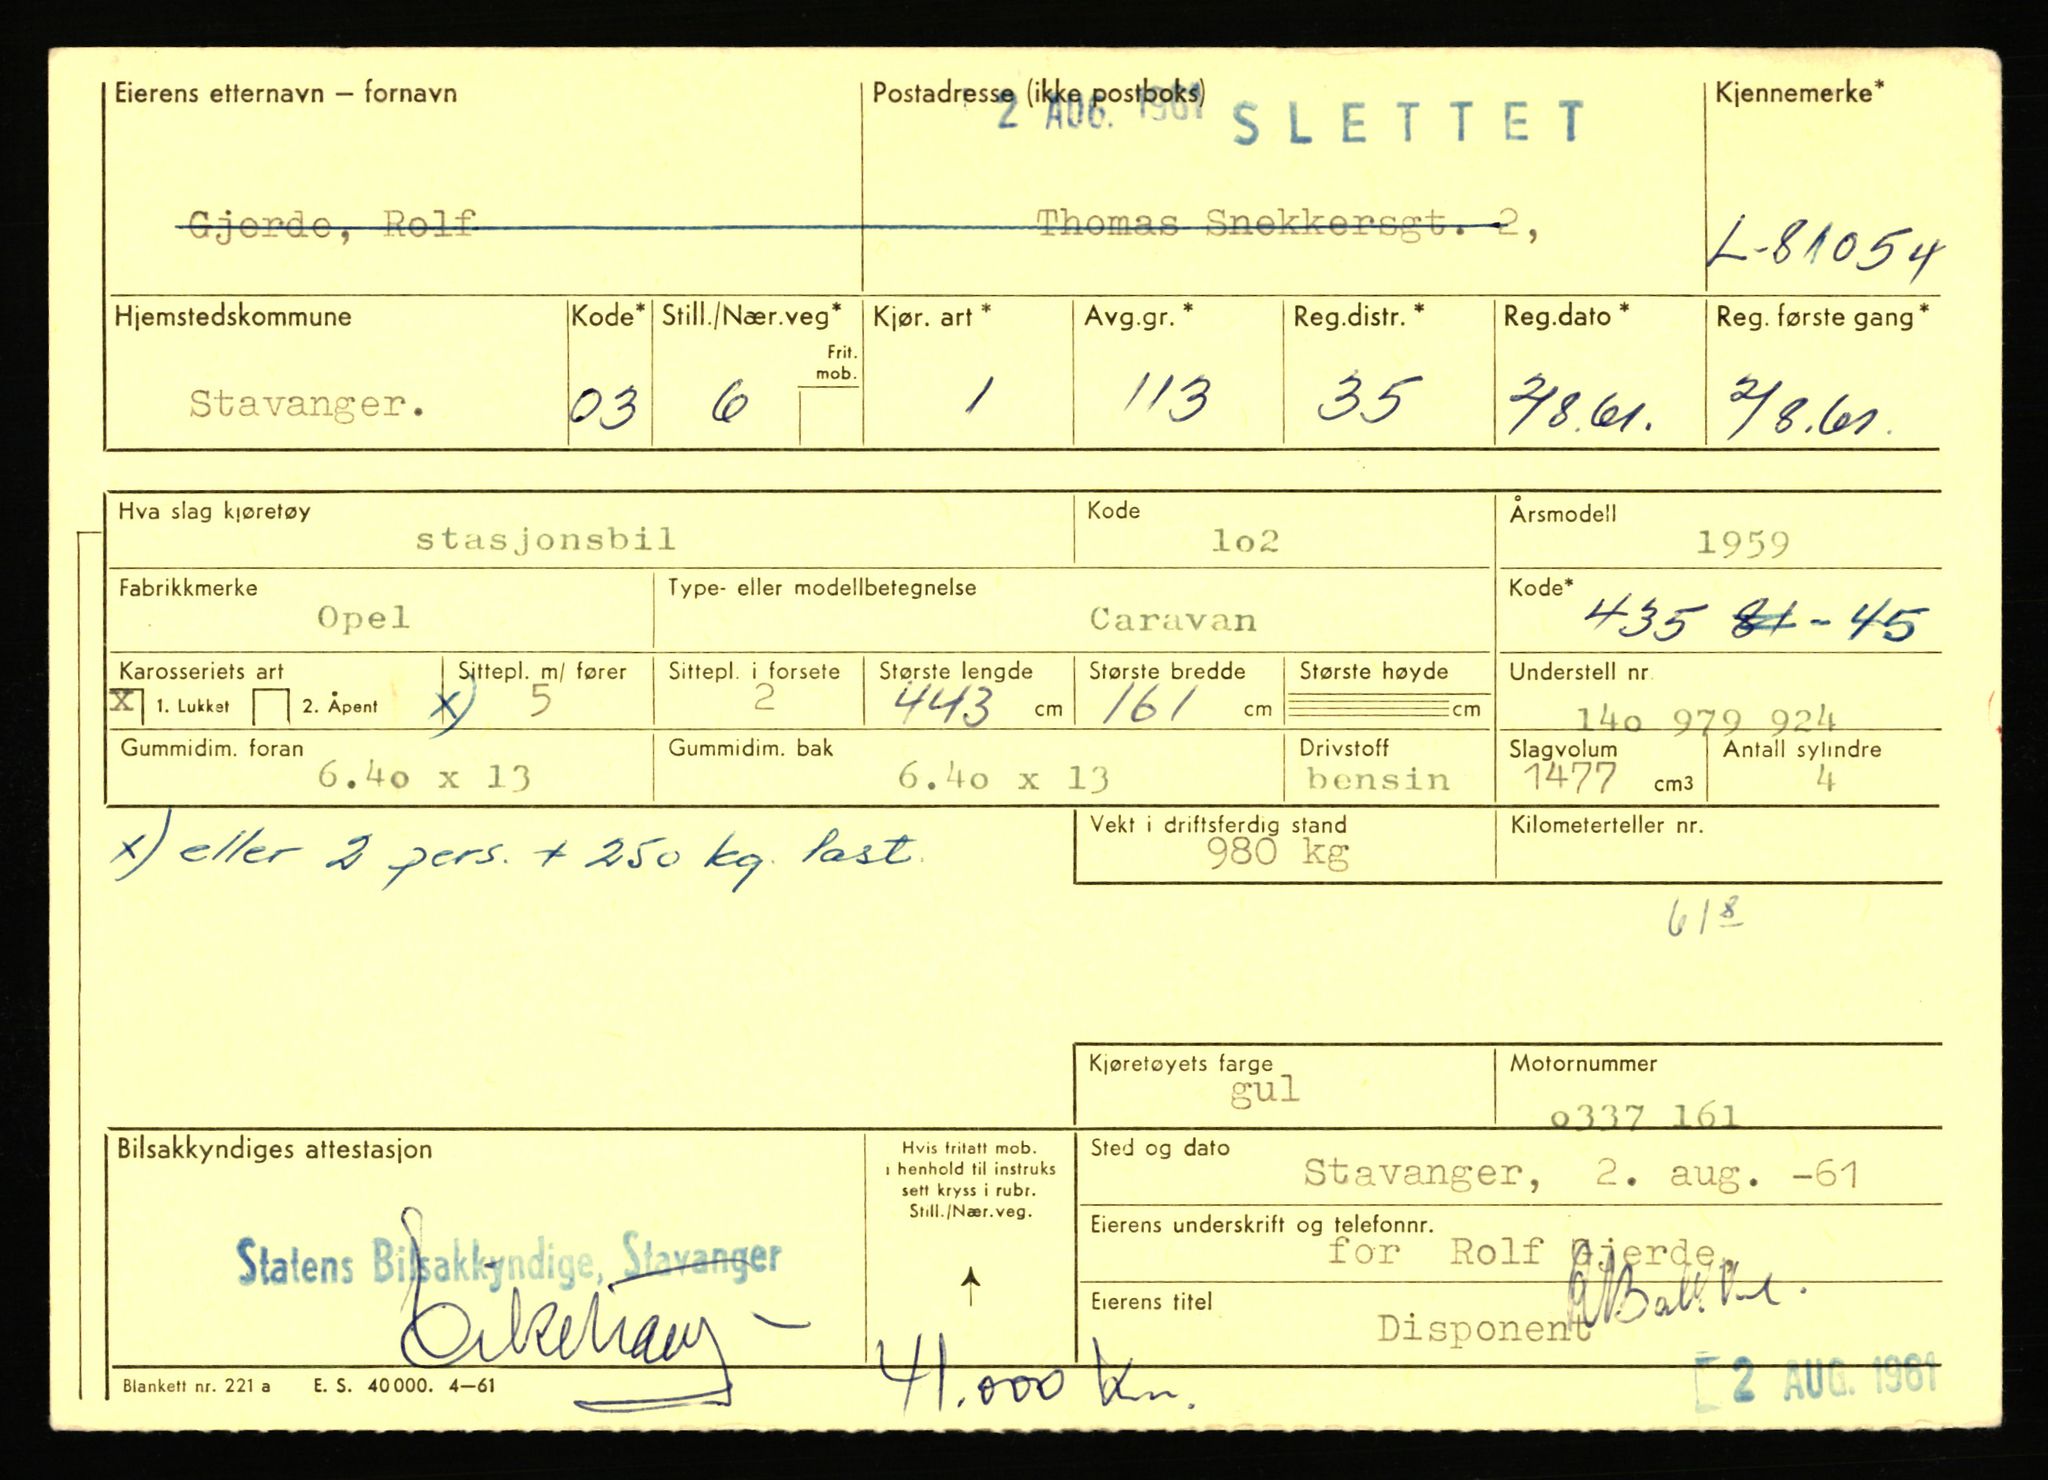 Eierens etternavn — fornavn Postadresse (ikke postboks) Kjennemerke*
2 AUG. 1961 SLETTET
Gjerde, Rolf Thomas Snekkersgt. 2,
L-81054
Hjemstedskommune Kode* Still./Nær.veg* Kjør. art * Avg.gr. * Reg.distr. * Reg.dato * Reg. første gang*
Frit.
mob.
Stavanger. 03 6 1 113 35 2/8.61. 2/8.61.
Hva slag kjøretøy Kode Årsmodell
stasjonsbil 1o2 1959
Fabrikkmerke Type- eller modellbetegnelse Kode*
Opel Caravan 435 81 - 45
Karosseriets art Sittepl. m/ fører Sittepl. i forsete Største lengde Største bredde Største høyde Understell nr.
X 1. Lukket 2. Åpent x) 5 2 443 cm 161 cm cm
14o 979 924
Gummidim. foran Gummidim. bak Drivstoff Slagvolum Antall sylindre
6.4o x 13 6.4o x 13 bensin 1477 cm3 4
Vekt i driftsferdig stand Kilometerteller nr.
x) eller 2 pers. + 250 kg. last. 980 kg
61 8
Kjøretøyets farge Motornummer
gul
o337 161
Bilsakkyndiges attestasjon Hvis fritatt mob. Sted og dato
i henhold til instruks
Stavanger, 2. aug. -61
sett kryss i rubr.
Still./Nær.veg.
Eierens underskrift og telefonnr.
Statens Bilsakkyndige, Stavanger for Rolf Gjerde,
Eierens titel
Disponent
41.000 Km.
Blankett nr. 221 a E. S. 40 000. 4—61 2 AUG. 1961